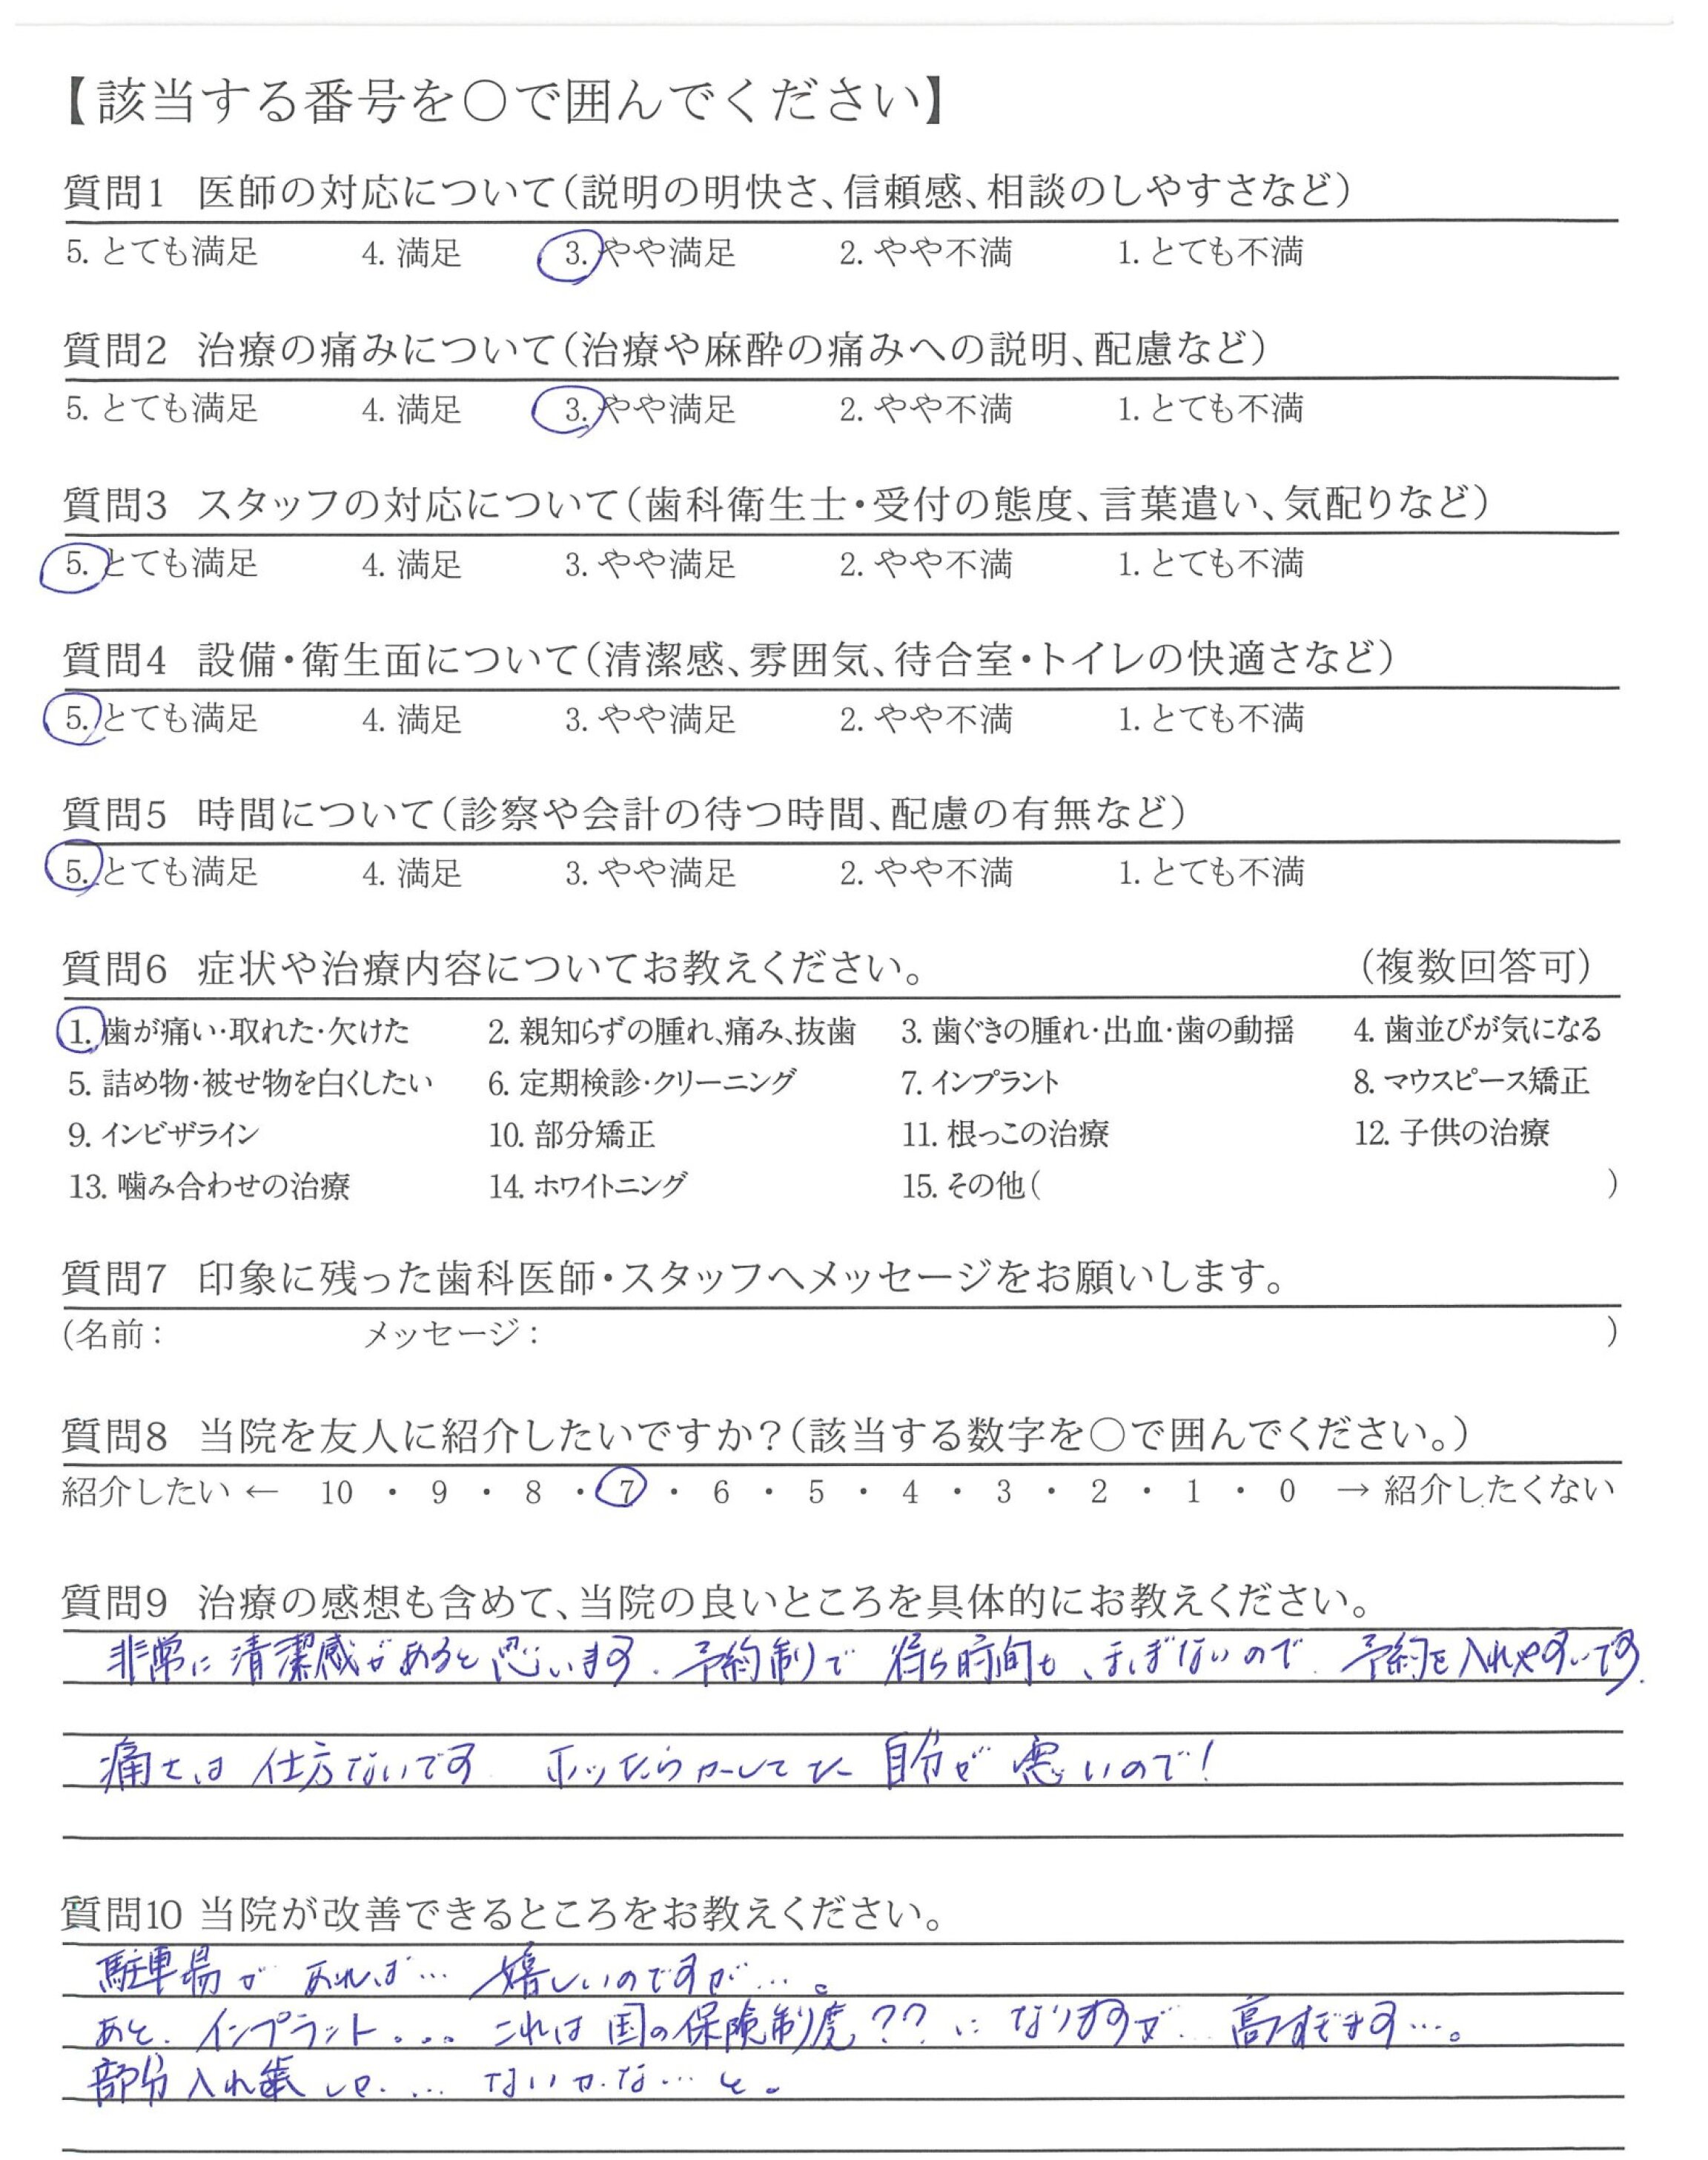 【該当する番号を○で囲んでください】
質問1 医師の対応について(説明の明快さ、信頼感、相談のしやすさなど)
5. とても満足 4. 満足 3. やや満足 2. やや不満 1. とても不満
質問2 治療の痛みについて(治療や麻酔の痛みへの説明、配慮など)
5. とても満足 4. 満足 3. やや満足 2. やや不満 1. とても不満
質問3 スタッフの対応について(歯科衛生士・受付の態度、言葉遣い、気配りなど)
5. とても満足 4. 満足 3. やや満足 2. やや不満 1. とても不満
質問4 設備・衛生面について(清潔感、雰囲気、待合室・トイレの快適さなど)
5. とても満足 4. 満足 3. やや満足 2. やや不満 1. とても不満
質問5 時間について(診察や会計の待つ時間、配慮の有無など)
5. とても満足 4. 満足 3. やや満足 2. やや不満 1. とても不満
質問6 症状や治療内容についてお教えください。 (複数回答可)
1. 歯が痛い・取れた・欠けた 2. 親知らずの腫れ、痛み、抜歯 3. 歯ぐきの腫れ・出血・歯の動揺 4. 歯並びが気になる
5. 詰め物・被せ物を白くしたい 6. 定期検診・クリーニング 7. インプラント 8. マウスピース矯正
9. インビザライン 10. 部分矯正 11. 根っこの治療 12. 子供の治療
13. 噛み合わせの治療 14. ホワイトニング 15. その他( )
質問7 印象に残った歯科医師・スタッフへメッセージをお願いします。
(名前: メッセージ: )
質問8 当院を友人に紹介したいですか?(該当する数字を○で囲んでください。)
紹介したい ← 10 ・ 9 ・ 8 ・ 7 ・ 6 ・ 5 ・ 4 ・ 3 ・ 2 ・ 1 ・ 0 → 紹介したくない
質問9 治療の感想も含めて、当院の良いところを具体的にお教えください。
非常に清潔感があると思います. 予約制で 待ち時間も、ほぼないので 予約を入れやすいです.
痛さは 仕方ないです ホッたらかしてた 自分が 悪いので!
質問10 当院が改善できるところをお教えください。
駐車場が あれば… 嬉しいのですが…。
あと. インプラント... これは 国の保険制度?? に なりますが… 高すぎます…。
部分入れ歯しか… ないかな… と。